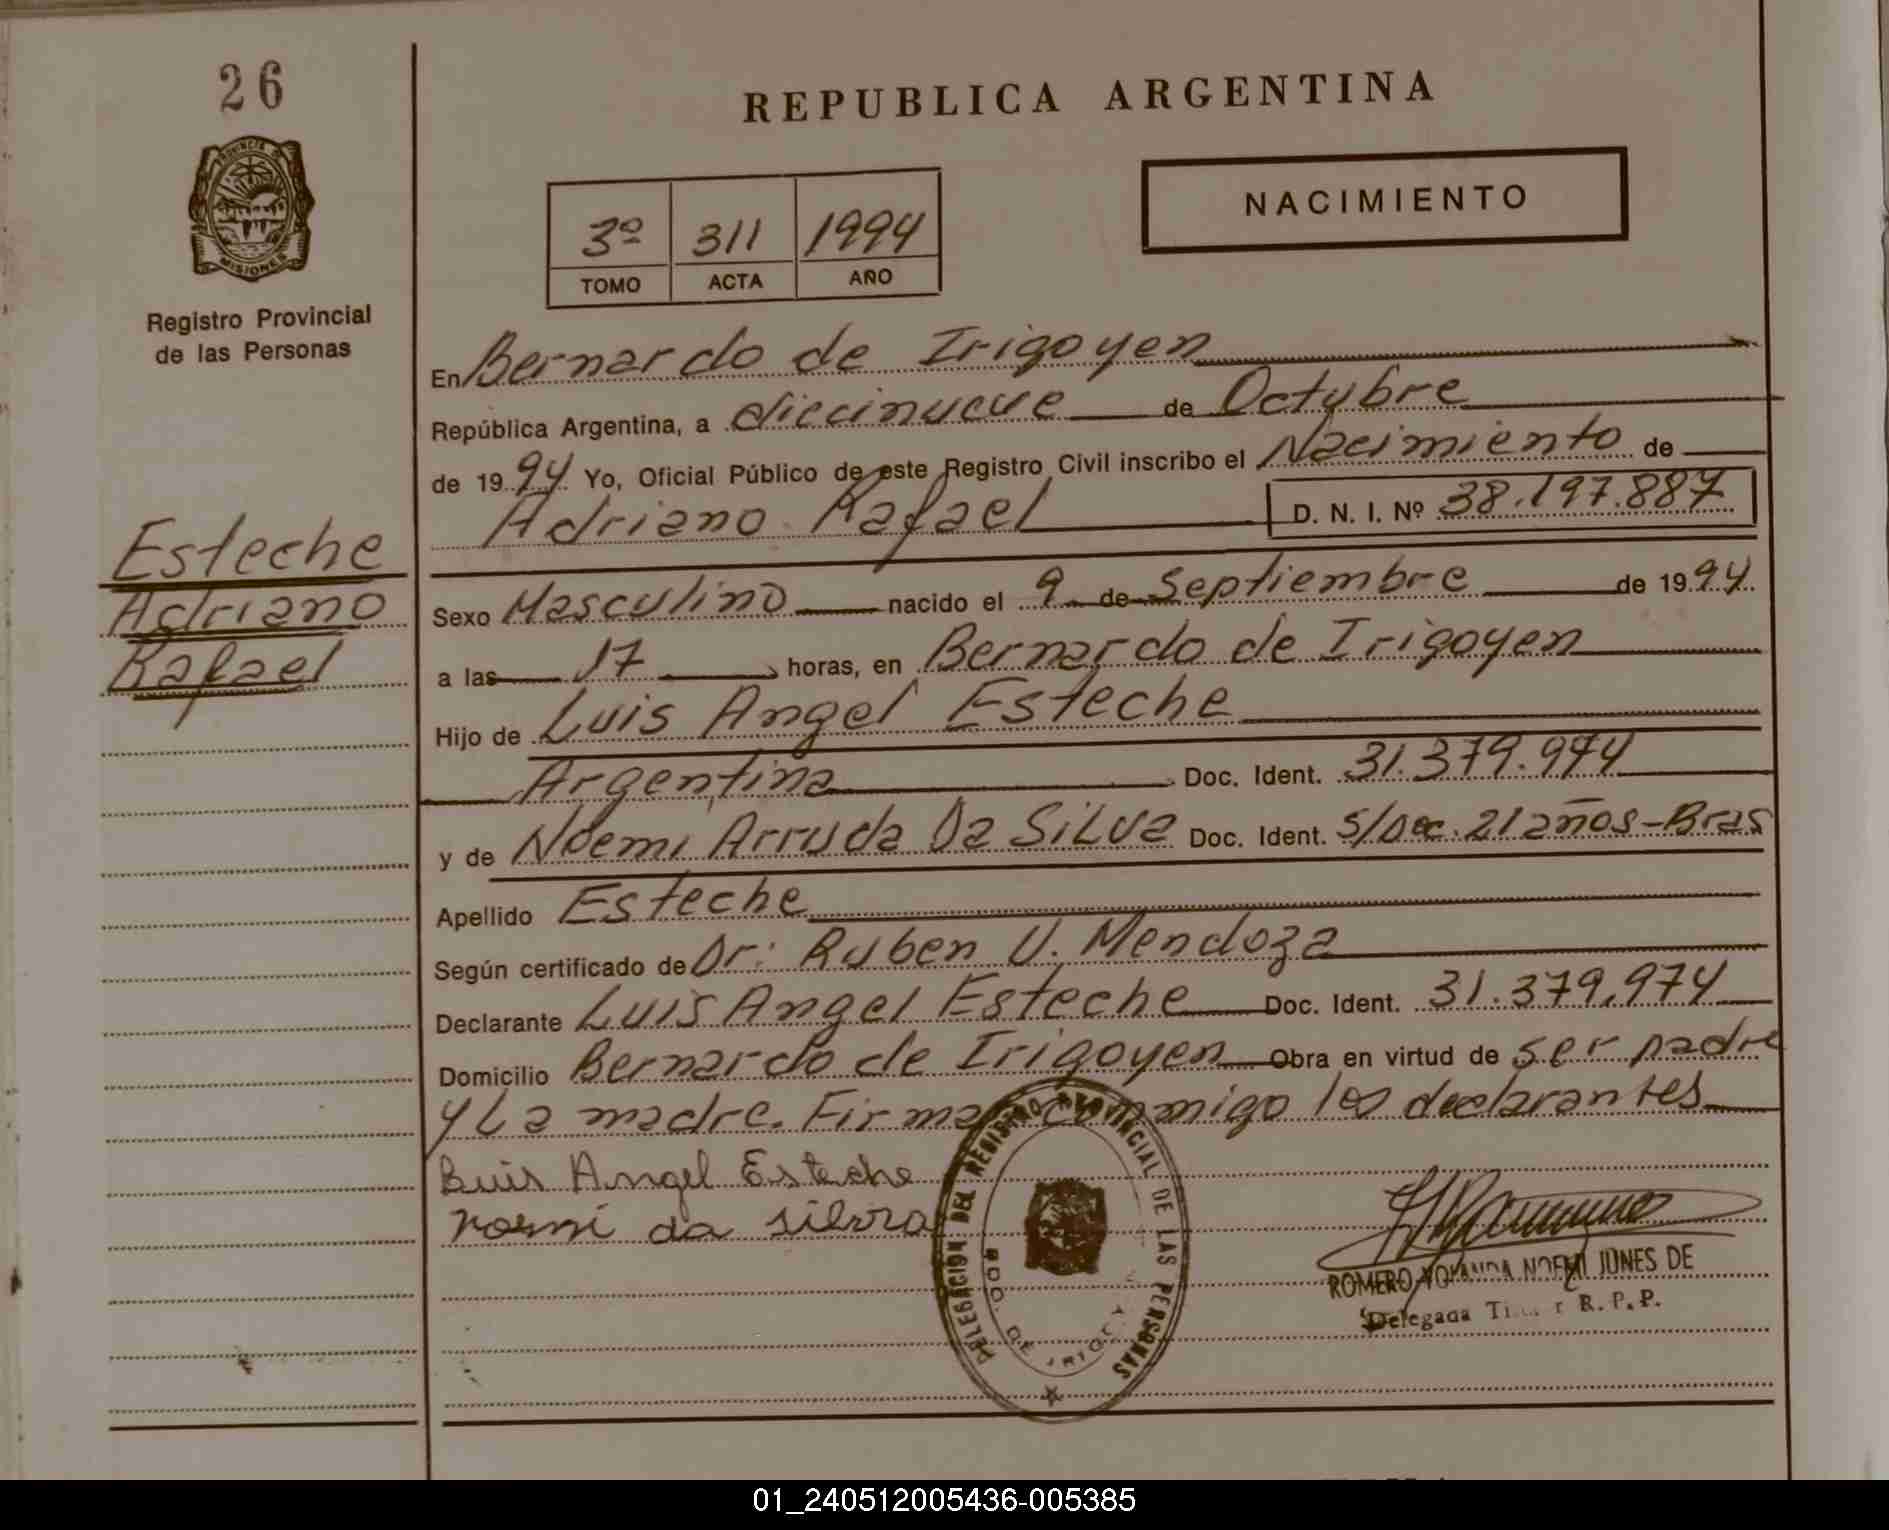 26
REPUBLICA ARGENTINA
PROVINCIA DE
MISIONES
Registro Provincial
de las Personas
NACIMIENTO
3º 311 1994
TOMO ACTA AÑO
En Bernardo de Irigoyen
República Argentina, a diecinueve de Octubre
de 1994 Yo, Oficial Público de este Registro Civil inscribo el Nacimiento de
Adriano Rafael D. N. I. Nº 38.197.887
Esteche
Adriano
Rafael
Sexo Masculino nacido el 9 de Septiembre de 1994
a las 17 horas, en Bernardo de Irigoyen
Hijo de Luis Angel Esteche
Argentina Doc. Ident. 31.379.974
y de Noemi Arruda Da Silva Doc. Ident. s/Doc. 21 años-Bras
Apellido Esteche
Según certificado de Dr: Ruben U. Mendoza
Declarante Luis Angel Esteche Doc. Ident. 31.379.974
Domicilio Bernardo de Irigoyen Obra en virtud de ser padre
y La madre. Firman conmigo los declarantes
Luis Angel Esteche
noemi da silvra
DELEGACION DEL REGISTRO PROVINCIAL DE LAS PERSONAS
BDO. DE IRIGOY
ROMERO YOLANDA NOEMI JUNES DE
Delegada R.P.P.
01_240512005436-005385